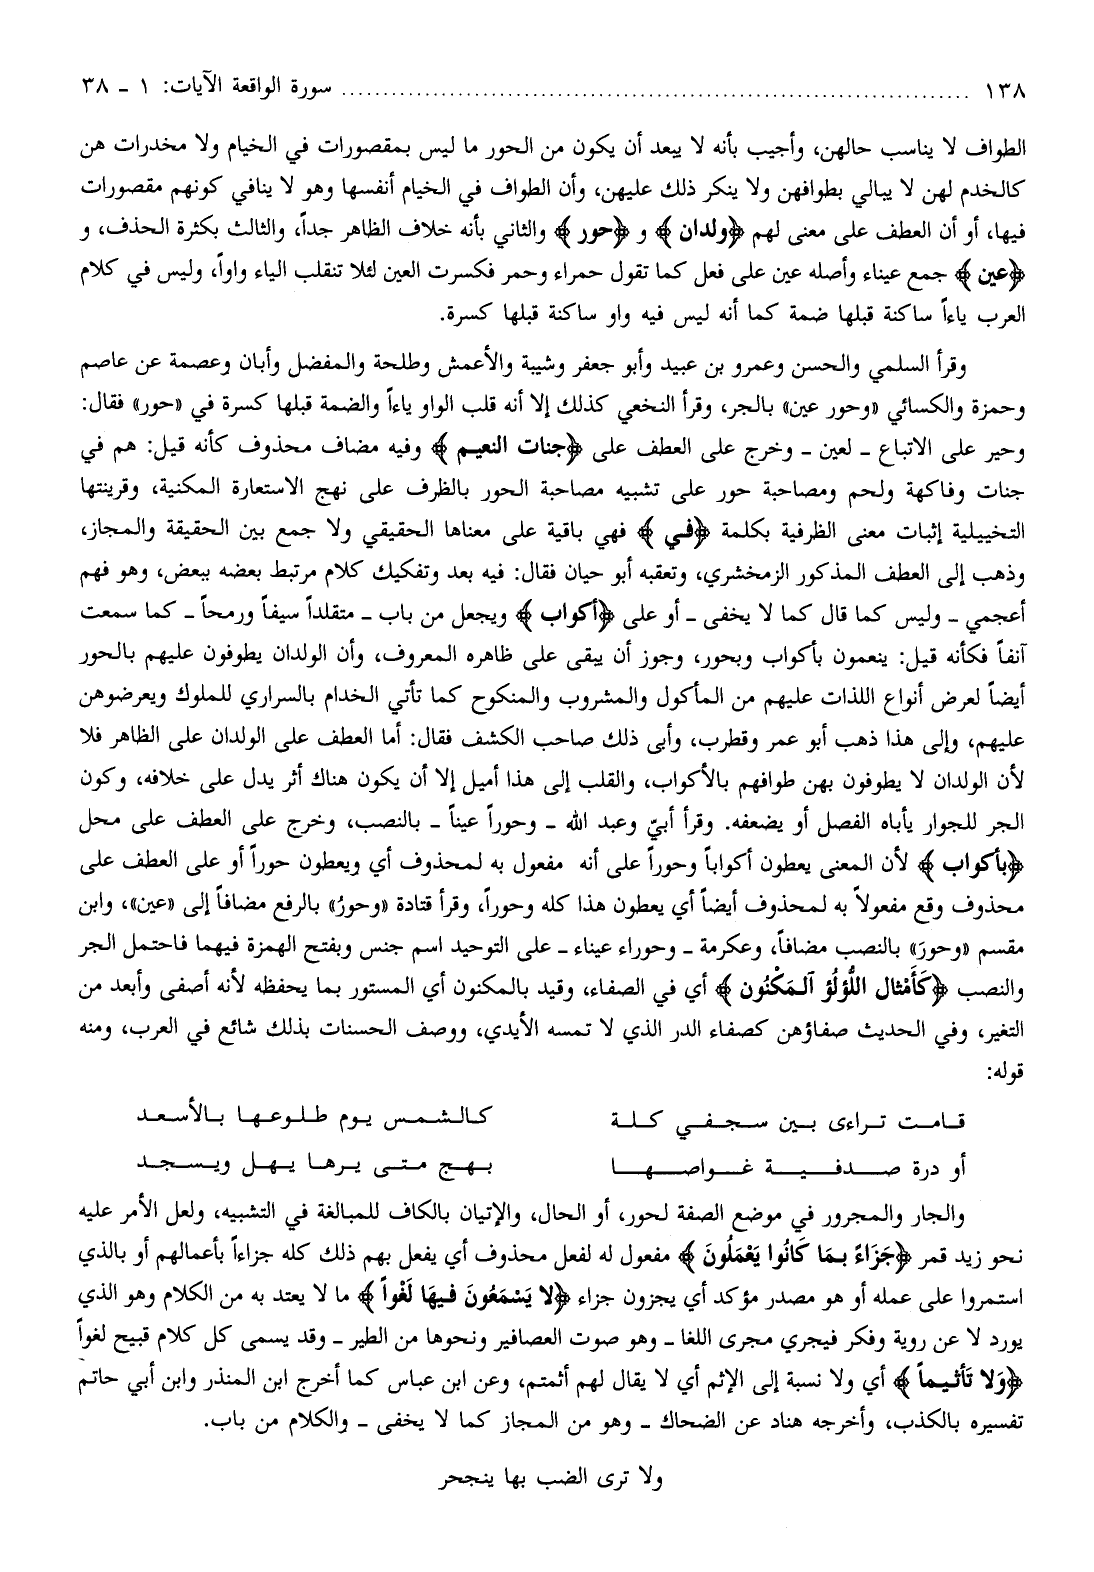 ١٣٨ ........................................................................ سورة الواقعة الآيات: ١ ـ ٣٨
الطواف لا يناسب حالهن، وأجيب بأنه لا يبعد أن يكون من الحور ما ليس بمقصورات في الخيام ولا مخدرات هن
كالخدم لهن لا يبالي بطوافهن ولا ينكر ذلك عليهن، وأن الطواف في الخيام أنفسها وهو لا ينافي كونهم مقصورات
فيها، أو أن العطف على معنى لهم ﴿ولدان﴾ و ﴿حور﴾ والثاني بأنه خلاف الظاهر جداً، والثالث بكثرة الحذف، و
﴿عين﴾ جمع عيناء وأصله عين على فعل كما تقول حمراء وحمر فكسرت العين لئلا تنقلب الياء واواً، وليس في كلام
العرب ياءاً ساكنة قبلها ضمة كما أنه ليس فيه واو ساكنة قبلها كسرة.
وقرأ السلمي والحسن وعمرو بن عبيد وأبو جعفر وشيبة والأعمش وطلحة والمفضل وأبان وعصمة عن عاصم
وحمزة والكسائي «وحور عين» بالجر، وقرأ النخعي كذلك إلا أنه قلب الواو ياءاً والضمة قبلها كسرة في «حور» فقال:
وحير على الاتباع ـ لعين ـ وخرج على العطف على ﴿جنات النعيم﴾ وفيه مضاف محذوف كأنه قيل: هم في
جنات وفاكهة ولحم ومصاحبة حور على تشبيه مصاحبة الحور بالظرف على نهج الاستعارة المكنية، وقرينتها
التخييلية إثبات معنى الظرفية بكلمة ﴿في﴾ فهي باقية على معناها الحقيقي ولا جمع بين الحقيقة والمجاز،
وذهب إلى العطف المذكور الزمخشري، وتعقبه أبو حيان فقال: فيه بعد وتفكيك كلام مرتبط بعضه ببعض، وهو فهم
أعجمي ـ وليس كما قال كما لا يخفى ـ أو على ﴿أكواب﴾ ويجعل من باب ـ متقلداً سيفاً ورمحاً ـ كما سمعت
آنفاً فكأنه قيل: ينعمون بأكواب وبحور، وجوز أن يبقى على ظاهره المعروف، وأن الولدان يطوفون عليهم بالحور
أيضاً لعرض أنواع اللذات عليهم من المأكول والمشروب والمنكوح كما تأتي الخدام بالسراري للملوك ويعرضوهن
عليهم، وإلى هذا ذهب أبو عمر وقطرب، وأبى ذلك صاحب الكشف فقال: أما العطف على الولدان على الظاهر فلا
لأن الولدان لا يطوفون بهن طوافهم بالأكواب، والقلب إلى هذا أميل إلا أن يكون هناك أثر يدل على خلافه، وكون
الجر للجوار يأباه الفصل أو يضعفه. وقرأ أبيّ وعبد الله ـ وحوراً عيناً ـ بالنصب، وخرج على العطف على محل
﴿بأكواب﴾ لأن المعنى يعطون أكواباً وحوراً على أنه مفعول به لمحذوف أي ويعطون حوراً أو على العطف على
محذوف وقع مفعولاً به لمحذوف أيضاً أي يعطون هذا كله وحوراً، وقرأ قتادة «وحورُ» بالرفع مضافاً إلى «عين»، وابن
مقسم «وحورَ» بالنصب مضافاً، وعكرمة ـ وحوراء عيناء ـ على التوحيد اسم جنس وبفتح الهمزة فيهما فاحتمل الجر
والنصب ﴿كَأَمْثال اللُّؤلُؤ اَلـمَكْنُون﴾ أي في الصفاء، وقيد بالمكنون أي المستور بما يحفظه لأنه أصفى وأبعد من
التغير، وفي الحديث صفاؤهن كصفاء الدر الذي لا تمسه الأيدي، ووصف الحسنات بذلك شائع في العرب، ومنه
قوله:
قامت تراءى بين سجفي كلة كالشمس يوم طلوعها بالأسعد
أو درة صدفية غواصها بهج متى يرها يهل ويسجد
والجار والمجرور في موضع الصفة لحور، أو الحال، والإتيان بالكاف للمبالغة في التشبيه، ولعل الأمر عليه
نحو زيد قمر ﴿جَزَاءً بـمَا كَانُوا يَعْمَلُونَ﴾ مفعول له لفعل محذوف أي يفعل بهم ذلك كله جزاءاً بأعمالهم أو بالذي
استمروا على عمله أو هو مصدر مؤكد أي يجزون جزاء ﴿لا يَسْمَعُونَ فـيهَا لَغْواً﴾ ما لا يعتد به من الكلام وهو الذي
يورد لا عن روية وفكر فيجري مجرى اللغا ـ وهو صوت العصافير ونحوها من الطير ـ وقد يسمى كل كلام قبيح لغواً
﴿وَلا تَأثـيـماً﴾ أي ولا نسبة إلى الإثم أي لا يقال لهم أثمتم، وعن ابن عباس كما أخرج ابن المنذر وابن أبي حاتم
تفسيره بالكذب، وأخرجه هناد عن الضحاك ـ وهو من المجاز كما لا يخفى ـ والكلام من باب.
ولا ترى الضب بها ينجحر